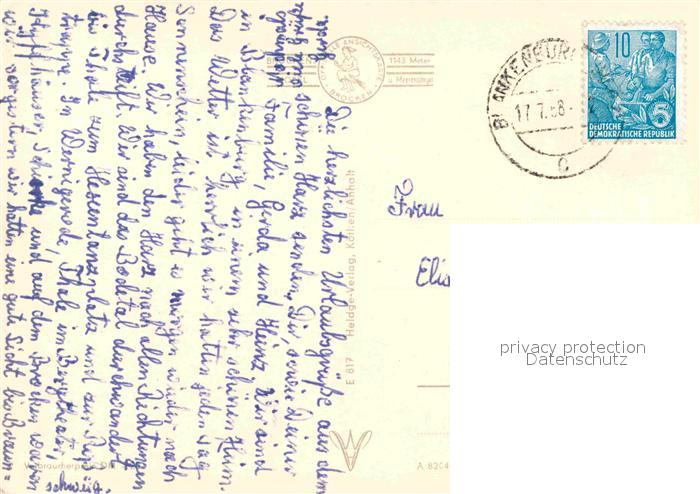 Die herzlichsten Urlaubsgrüße aus dem
schönen Harz senden Dir, sowie Deiner
Familie, Gerda und Heinz. Wir sind
in Blankenburg in einem sehr schönen Heim.
Das Wetter ist herrlich wir hatten jeden Tag
Sonnenschein, leider geht es morgen wieder nach
Hause. Wir haben den Harz nach allen Richtungen
durchstreift. Wir sind das Bodetal durchwandert
bis Thale zum Hexentanzplatz und zur Roß-
trappe. In Wernigerode, Thale im Bergtheater,
Kyffhäuser, Schierke und auf dem Brocken waren
wir vorgestern wir hatten eine gute Sicht bis Braun=
schweig.
1143 Meter
BROCKEN
BLANKENBURG
17.7.58-
c
10
5
DEUTSCHE
DEMOKRATISCHE REPUBLIK
Frau
Elis
E 817 Heldge-Verlag, Köthen/Anhalt
privacy protection
Datenschutz
Verbraucherpreis DM
A 8204